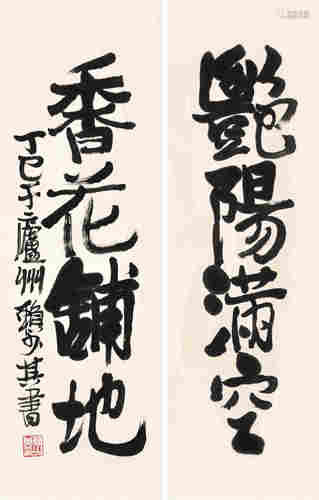 艷陽滿空
香花鋪地
丁巳于廬州賴少其書